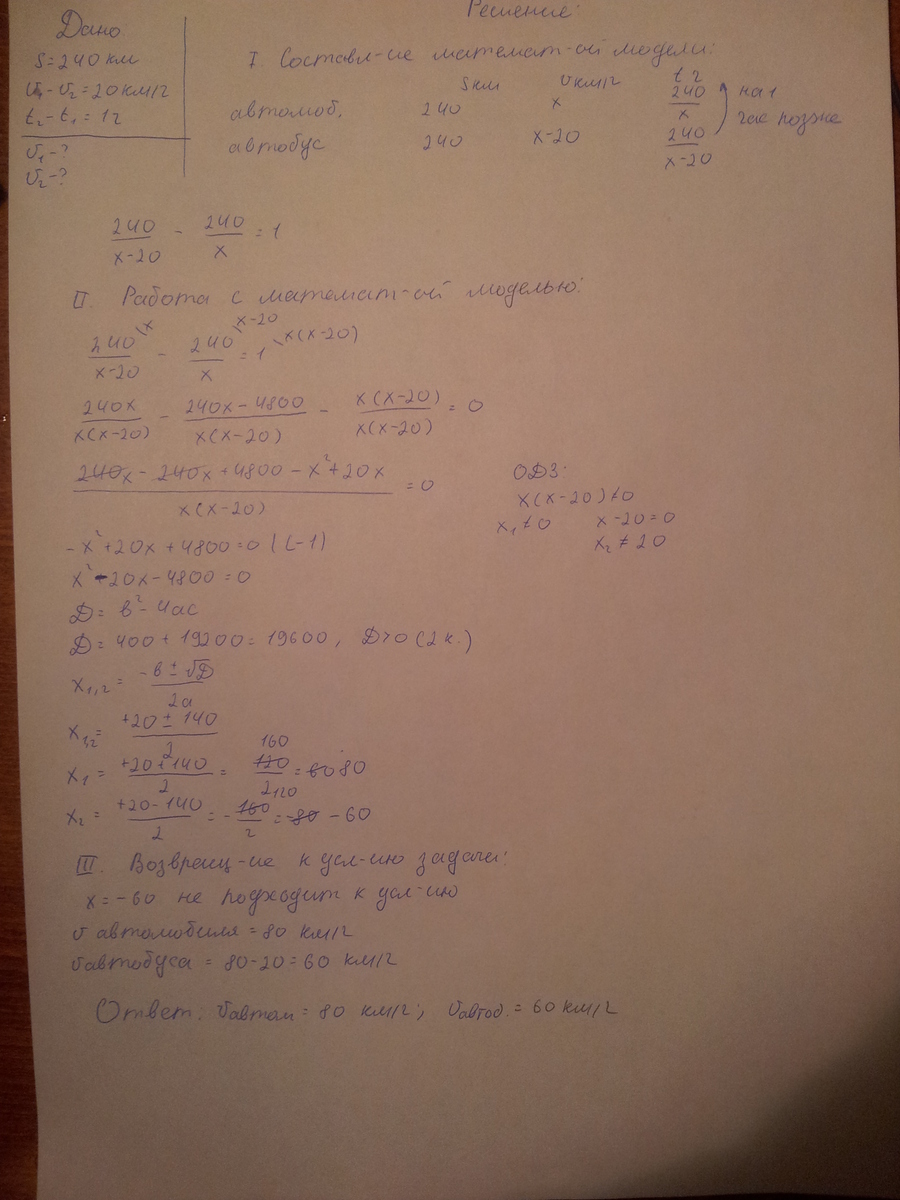 Решение:
Дано
S = 240 км
v₁ - v₂ = 20 км/г
t₂ - t₁ = 1 г
v₁ - ?
v₂ - ?
I. Составл-ие математ-ой модели:
S км v км/г t г
автомоб. 240 x 240/x
автобус 240 x-20 240/(x-20)
на 1
час позже
240/(x-20) - 240/x = 1
II. Работа с математ-ой моделью:
240/(x-20) \x - 240/x \x-20 = 1 \x(x-20)
240x/(x(x-20)) - (240x - 4800)/(x(x-20)) - x(x-20)/(x(x-20)) = 0
(240x - 240x + 4800 - x² + 20x)/(x(x-20)) = 0
ОДЗ:
x(x-20) ≠ 0
x₁ ≠ 0 x - 20 = 0
x₂ ≠ 20
-x² + 20x + 4800 = 0 | (-1)
x² - 20x - 4800 = 0
Д = в² - 4ас
Д = 400 + 19200 = 19600, Д>0 (2 к.)
x₁,₂ = (-в ± √Д)/2а
x₁,₂ = (+20 ± 140)/2
x₁ = (+20 + 140)/2 = 160/2 = 80
x₂ = (+20 - 140)/2 = -120/2 = -60
III. Возвращ-ие к усл-ию задачи:
x = -60 не подходит к усл-ию
v автомобиля = 80 км/г
v автобуса = 80 - 20 = 60 км/г
Ответ: v автом = 80 км/г; v автоб. = 60 км/г